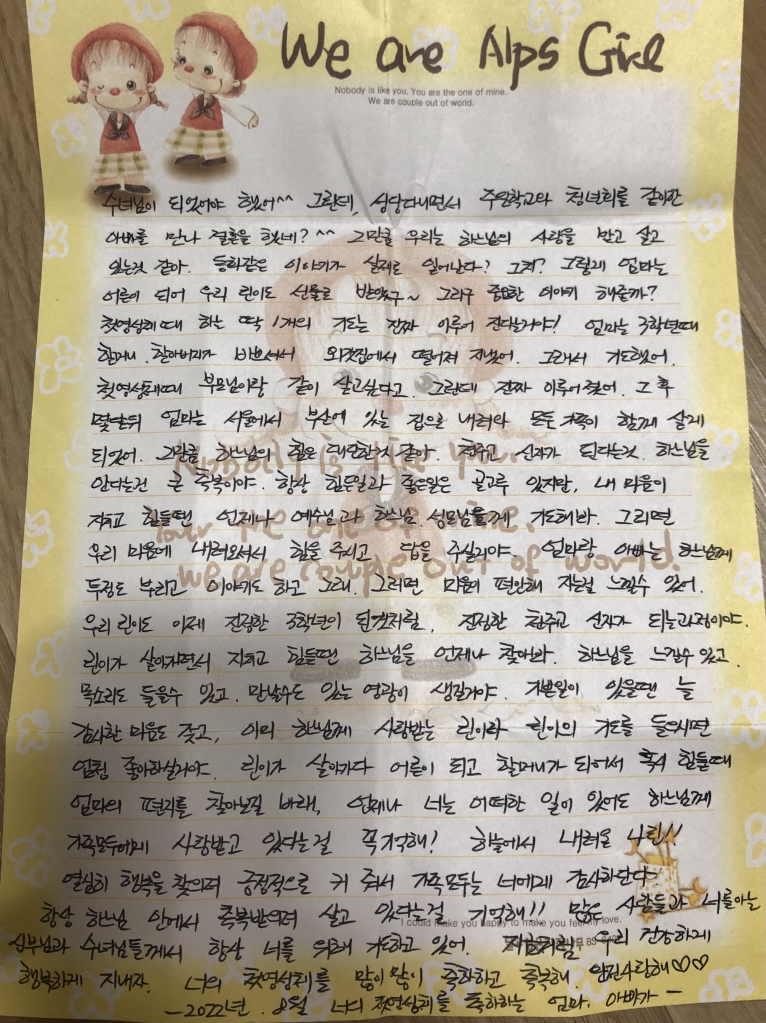 We are Alps Girl
Nobody is like you. You are the one of mine.
We are couple out of world.
수녀님이 되었어야 했어^^ 그런데, 성당다니면서 주일학교와 청년회를 같이한
아빠를 만나 결혼을 했네? ^^ 그만큼 우리는 하느님의 사랑을 받고 살고
있는것 같아. 동화같은 이야기가 실제로 일어난다? 그치? 그렇게 엄마는
어른이 되어 우리 린이도 선물로 받았구~ 그리구 중요한 이야기 해줄까?
첫영성체때 하는 딱 1개의 기도는 진짜 이루어 진다는거야! 엄마는 3학년때
할머니, 할아버지가 바쁘셔서 외갓집에서 떨어져 지냈어. 그래서 기도했어.
첫영성체때 부모님이랑 같이 살고싶다고. 그런데 진짜 이루어졌어. 그 후
몇달뒤 엄마는 서울에서 부산에 있는 집으로 내려와 모든 가족이 함께 살게
되었어. 그만큼 하느님의 힘은 대단한것 같아. 천주교 신자가 된다는것. 하느님을
안다는건 큰 축복이야. 항상 힘든일과 좋은일은 골고루 있지만, 내 마음이
지치고 힘들땐 언제나 예수님과 하느님. 성모님들께 기도해봐. 그러면
우리 마음에 내려오셔서 힘을 주시고 답을 주실거야. 엄마랑 아빠는 하느님께
투정도 부리고 이야기도 하고 그래. 그러면 마음이 편안해 지는걸 느낄수 있어.
우리 린이도 이제 진정한 3학년이 된것처럼, 진정한 천주교 신자가 되는과정이야.
린이가 살아가면서 지치고 힘들땐 하느님을 언제나 찾아봐. 하느님을 느낄수 있고.
목소리도 들을수 있고. 만날수도 있는 영광이 생길거야. 기쁜일이 있을땐 늘
감사한 마음도 갖고, 이미 하느님께 사랑받는 린이라 린이의 기도를 들으시면
엄청 좋아하실거야. 린이가 살아가다 어른이 되고 할머니가 되어서 혹시 힘들때
엄마의 편지를 찾아보길 바래, 언제나 너는 어떠한 일이 있어도 하느님께
가족모두에게 사랑받고 있다는걸 꼭 기억해! 하늘에서 내려온 나린!!
열심히 행복을 찾으며 긍정적으로 커 줘서 가족모두는 너에게 감사한단다
항상 하느님 안에서 축복받으며 살고 있다는걸 기억해!! 많은 사람들과 너를아는
I could make you happy to make you feel my love.
신부님과 수녀님들께서 항상 너를 위해 기도하고 있어. 지금처럼 우리 건강하게
행복하게 지내자. 너의 첫영성체를 많이많이 축하하고 축복해. 엄마사랑해♡♡
-2022년. 8월 너의 첫영성체를 축하하는 엄마. 아빠가-